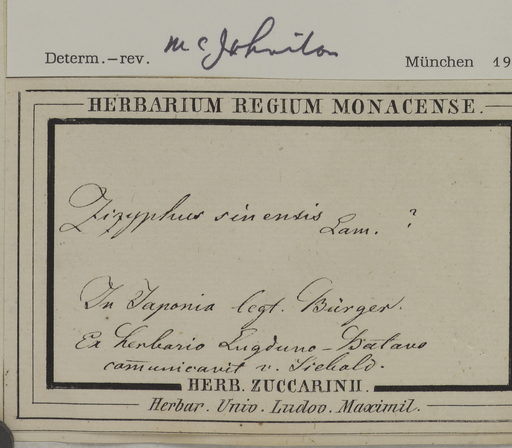 Determ.—rev. M C Johnston
München 19
HERBARIUM REGIUM MONACENSE.
Zizyphus sinensis Lam. ?
In Japonia legt. Bürger.
Ex herbario Lugduno-Batavo
communicavit v. Siebold.
HERB. ZUCCARINII.
Herbar. Univ. Ludov. Maximil.